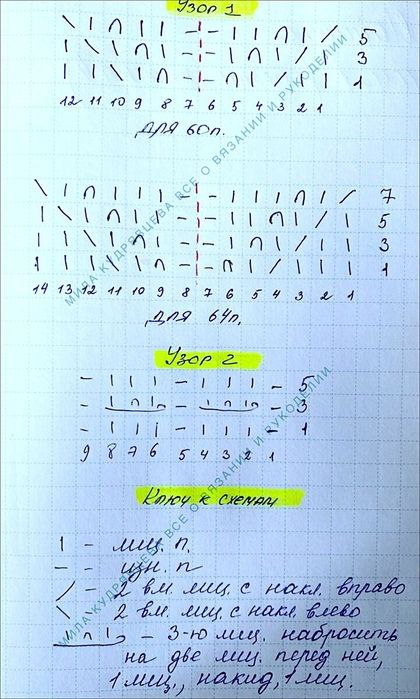 Узор 1
\ | ∩ | | - - | | ∩ | / 5
| \ | ∩ | - - | ∩ | / | 3
| | \ | ∩ - - ∩ | / | | 1
12 11 10 9 8 7 6 5 4 3 2 1
для 60п.
\ | ∩ | | | - - | | | ∩ | / 7
| \ | ∩ | | - - | | ∩ | / | 5
| | \ | ∩ | - - | ∩ | / | | 3
| | | \ | ∩ - - ∩ | / | | | 1
14 13 12 11 10 9 8 7 6 5 4 3 2 1
для 64п.
Узор 2
- | | | - | | | - 5
- | ∩ | - | ∩ | - 3
- | | | - | | | - 1
9 8 7 6 5 4 3 2 1
Ключ к схемам
| - лиц. п.
— - изн. п
/ - 2 вм. лиц. с накл. вправо
\ 2 вм. лиц с накл влево
| ∩ | - 3-ю лиц. набросить
на две лиц. перед ней,
1 лиц., накид, 1 лиц.
МИЛА КУДРЯВЦЕВА ВСЕ О ВЯЗАНИИ И РУКОДЕЛИИ
МИЛА КУДРЯВЦЕВА ВСЕ О ВЯЗАНИИ И РУКОДЕЛИИ